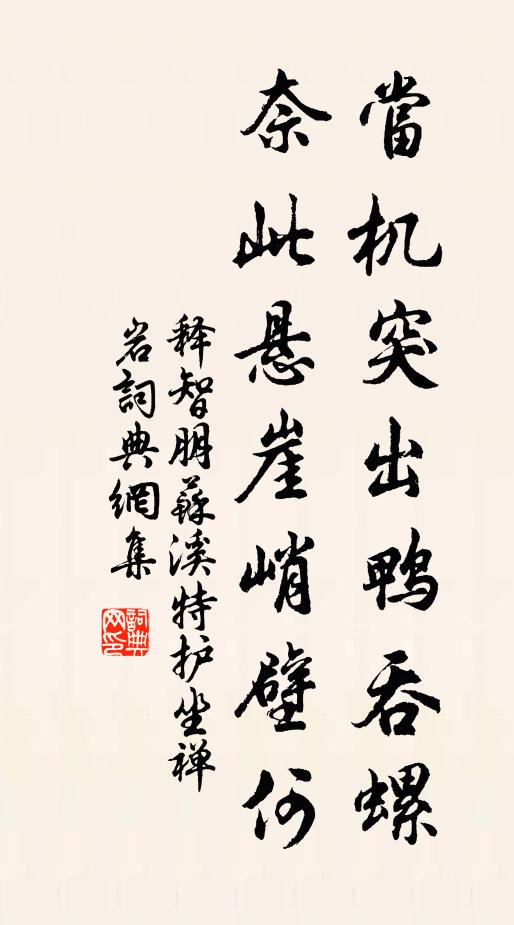 當机突出鸭吞螺
奈此悬崖峭壁何
释智朋蘇溪特护坐禅
岩詞典網集
詞典網印